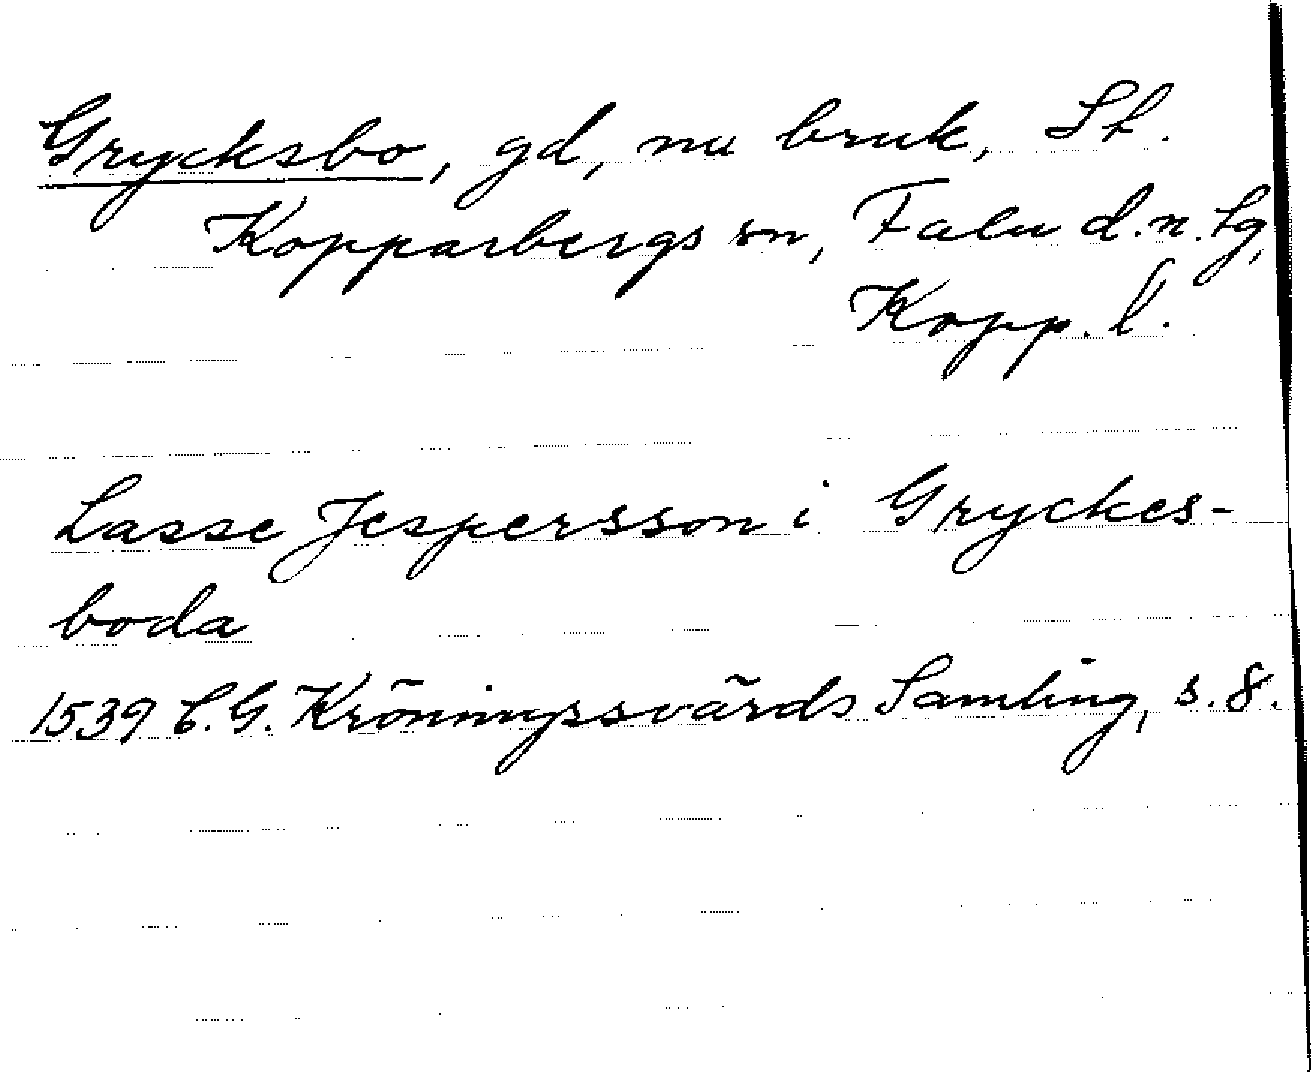 Grycksbo, gd, nu bruk, St.
Kopparbergs sn, Falu d.n. tg,
Kopp. l.
Lasse Jespersson i Gryckes-
boda
1539 C.G. Kröningssvärds Samling, s. 8.